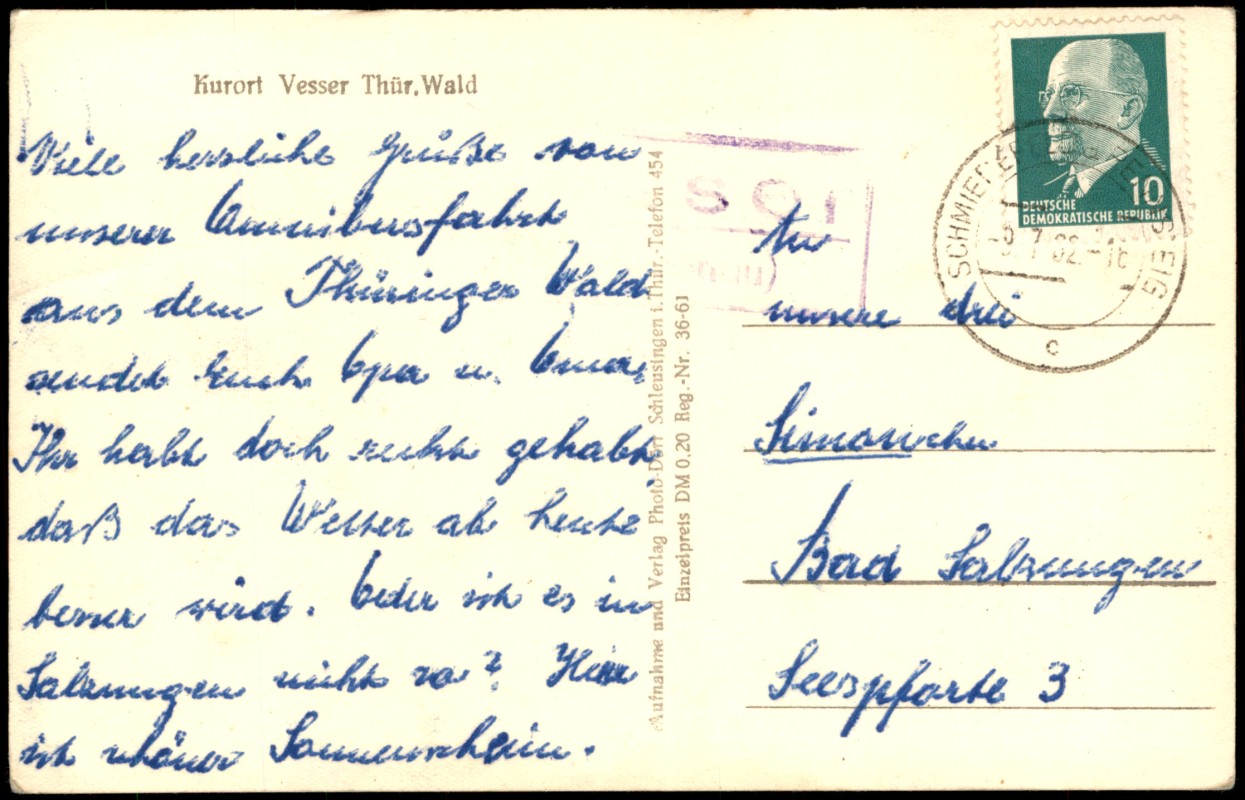 Kurort Vesser Thür. Wald
Viele herzliche Grüße von
unserer Omnibusfahrt
aus dem Thüringer Wald
sendet Euch Opa u. Oma.
Ihr habt doch recht gehabt
daß das Wetter ab heute
besser wird. Oder ist es in
Salzungen nicht so? Hier
ist schöner Sonnenschein.
Aufnahme und Verlag Photo-Dörr Schleusingen i. Thür. - Telefon 454
Einzelpreis DM 0,20 Reg.-Nr. 36-61
10
DEUTSCHE
DEMOKRATISCHE REPUBLIK
SCHMIEDEFELD
c
An
unsere drei
Simönchen
Bad Salzungen
Seerpforte 3